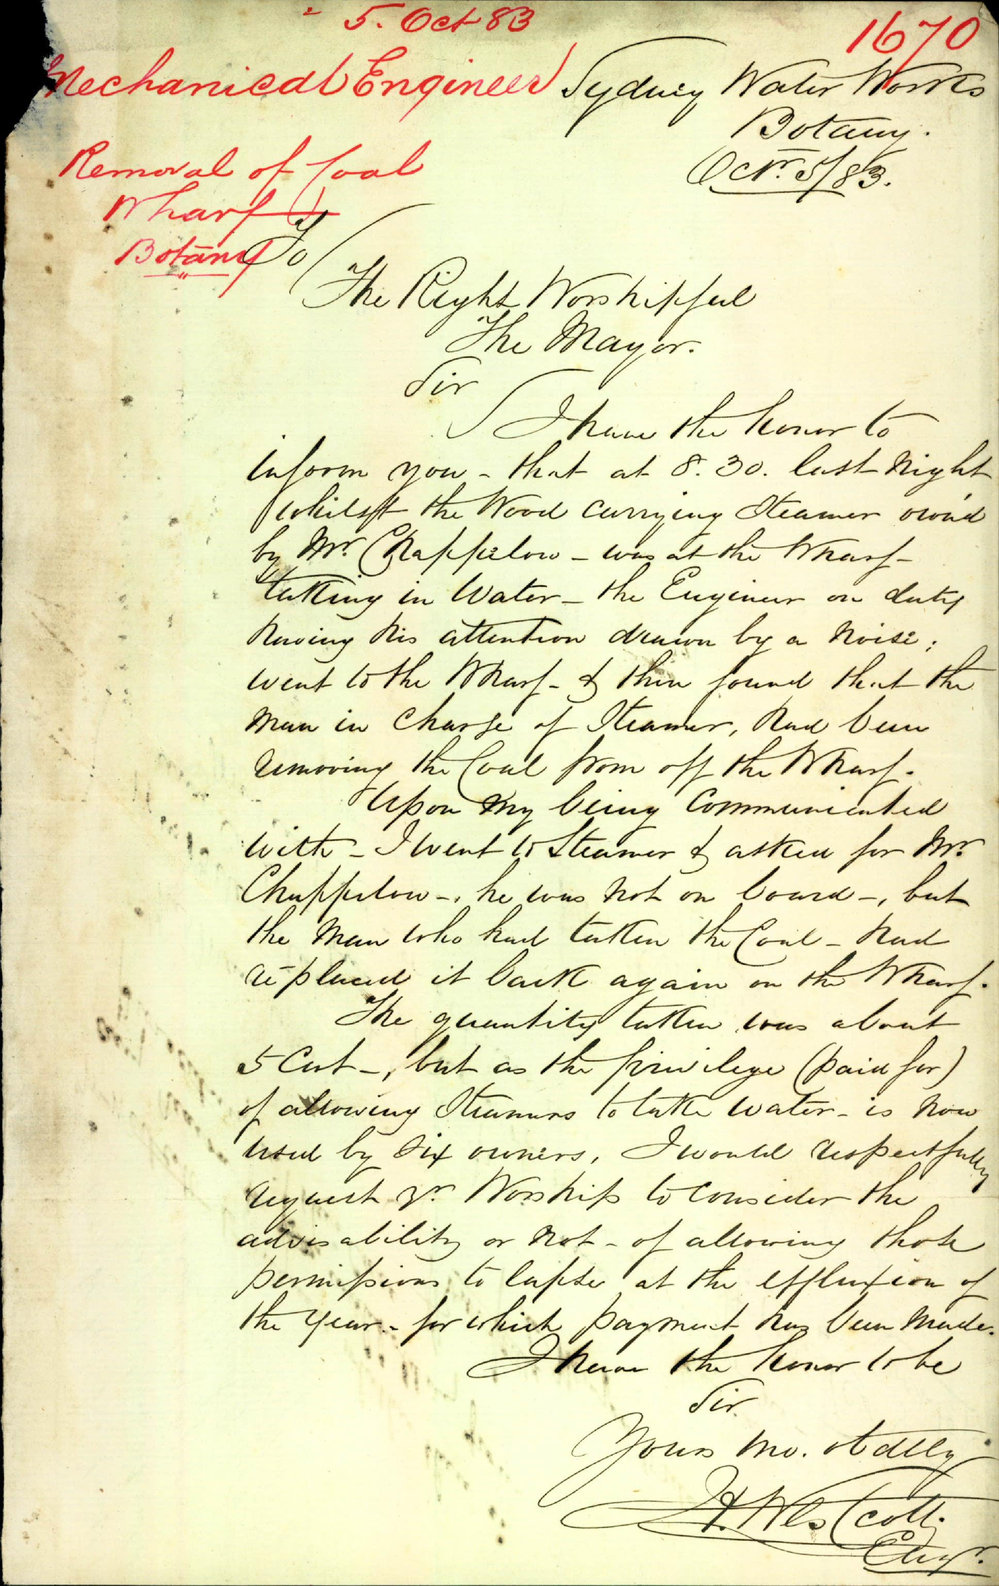 5. Oct 83
1670
Mechanical Engineer
Removal of Coal
Wharf
Botany
Sydney Water Works
Botany.
Octr. 5/83.
To
The Right Worshipful
The Mayor.
Sir
I have the honor to
inform you - that at 8.30. last Night
whilst the Wood carrying Steamer own'd
by Mr. Chappelow - was at the Wharf -
taking in Water - the Engineer on duty
having his attention drawn by a Noise;
went to the Wharf - & then found that the
Man in Charge of Steamer, had been
removing the Coal from off the Wharf.
Upon my being Communicated
with - I went to Steamer & asked for Mr.
Chappelow -, he was not on board -, but
the Man who had taken the Coal - had
replaced it back again on the Wharf.
The quantity taken was about
5 Cwt -, but as the privilege (paid for)
of allowing Steamers to take water - is now
used by six owners, I would respectfully
request yr. Worship to consider the
advisability or not - of allowing those
permissions to lapse at the effluxion of
the year - for which payment has been made.
I have the honor to be
Sir
Yours mo. obdtly
H. Wescott
Engr.